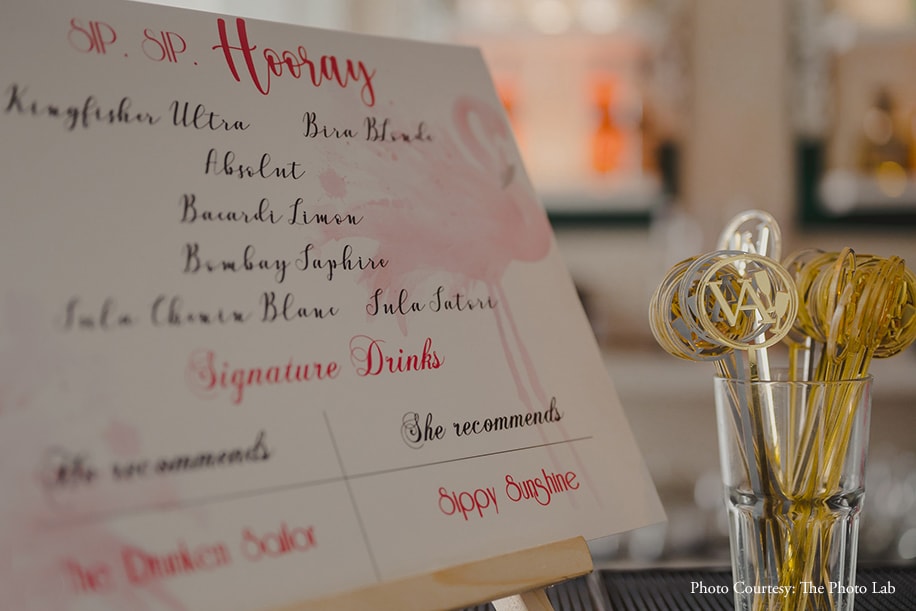 SIP. SIP. Hooray
Kingfisher Ultra Bira Blonde
Absolut
Bacardi Limon
Bombay Saphire
Sula Chenin Blanc Sula Satori
Signature Drinks
He recommends She recommends
The Drunken Sailor Sippy Sunshine
VA
Photo Courtesy: The Photo Lab